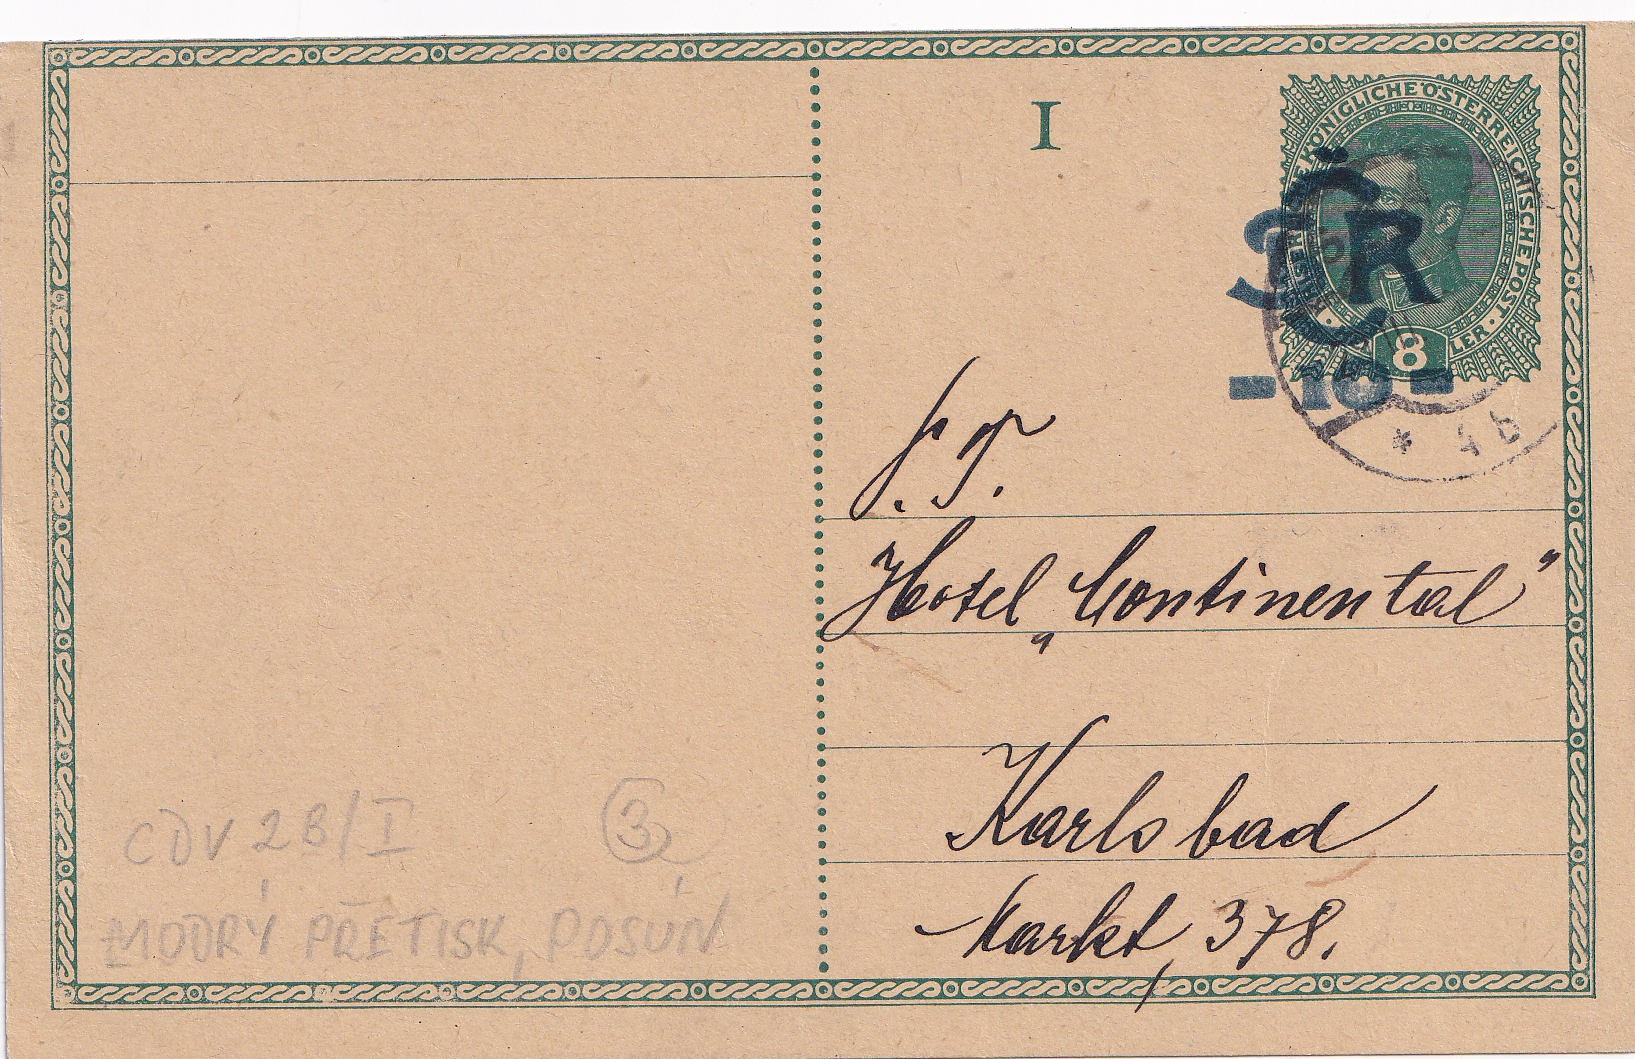 I
KAISERLICHE KÖNIGLICHE ÖSTERREICHISCHE POST
8
ČSR
-10-
* 4b
P. T.
Hotel „Continental"
Karlsbad
Markt, 378.
CDV 2B/I
3
MODRÝ PŘETISK, POSUN